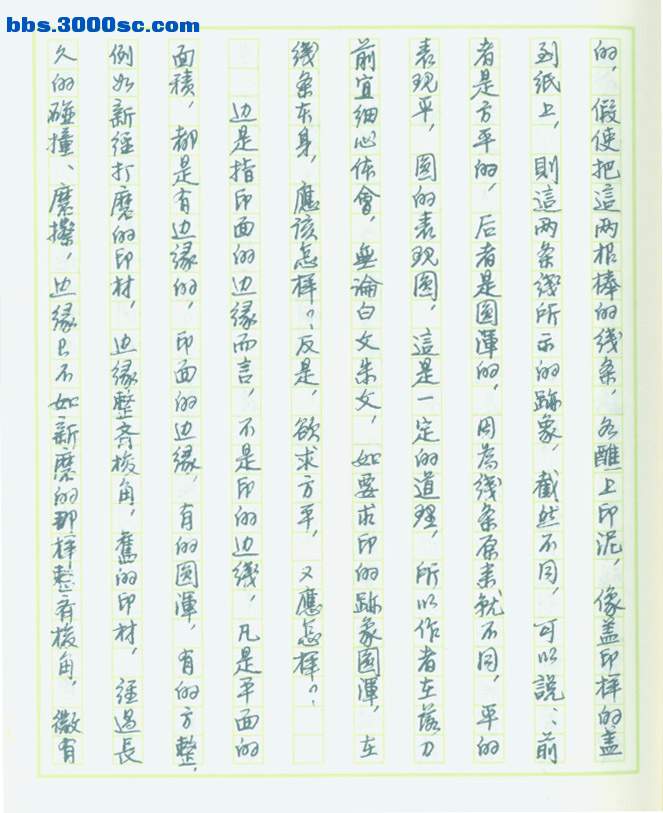 bbs.3000sc.com
的，假使把這两根棒的綫条，各醮上印泥，像盖印样的盖
到纸上，則這两条綫所示的跡象，截然不同，可以説：前
者是方平的，后者是圆渾的，因為綫条原来就不同，平的
表现平，圆的表现圆，這是一定的道理，所以作者在落刀
前宜细心体會，無論白文朱文，如要求印的跡象圆渾，在
綫条本身，應该怎样？反是，欲求方平，又應怎样？
边是指印面的边缘而言，不是印的边綫，凡是平面的
面積，都是有边缘的，印面的边缘，有的圆渾，有的方整，
例如新經打磨的印材，边缘整齐棱角，舊的印材，經過長
久的碰撞、磨擦，边缘已不如新磨的那样整齐棱角，微有